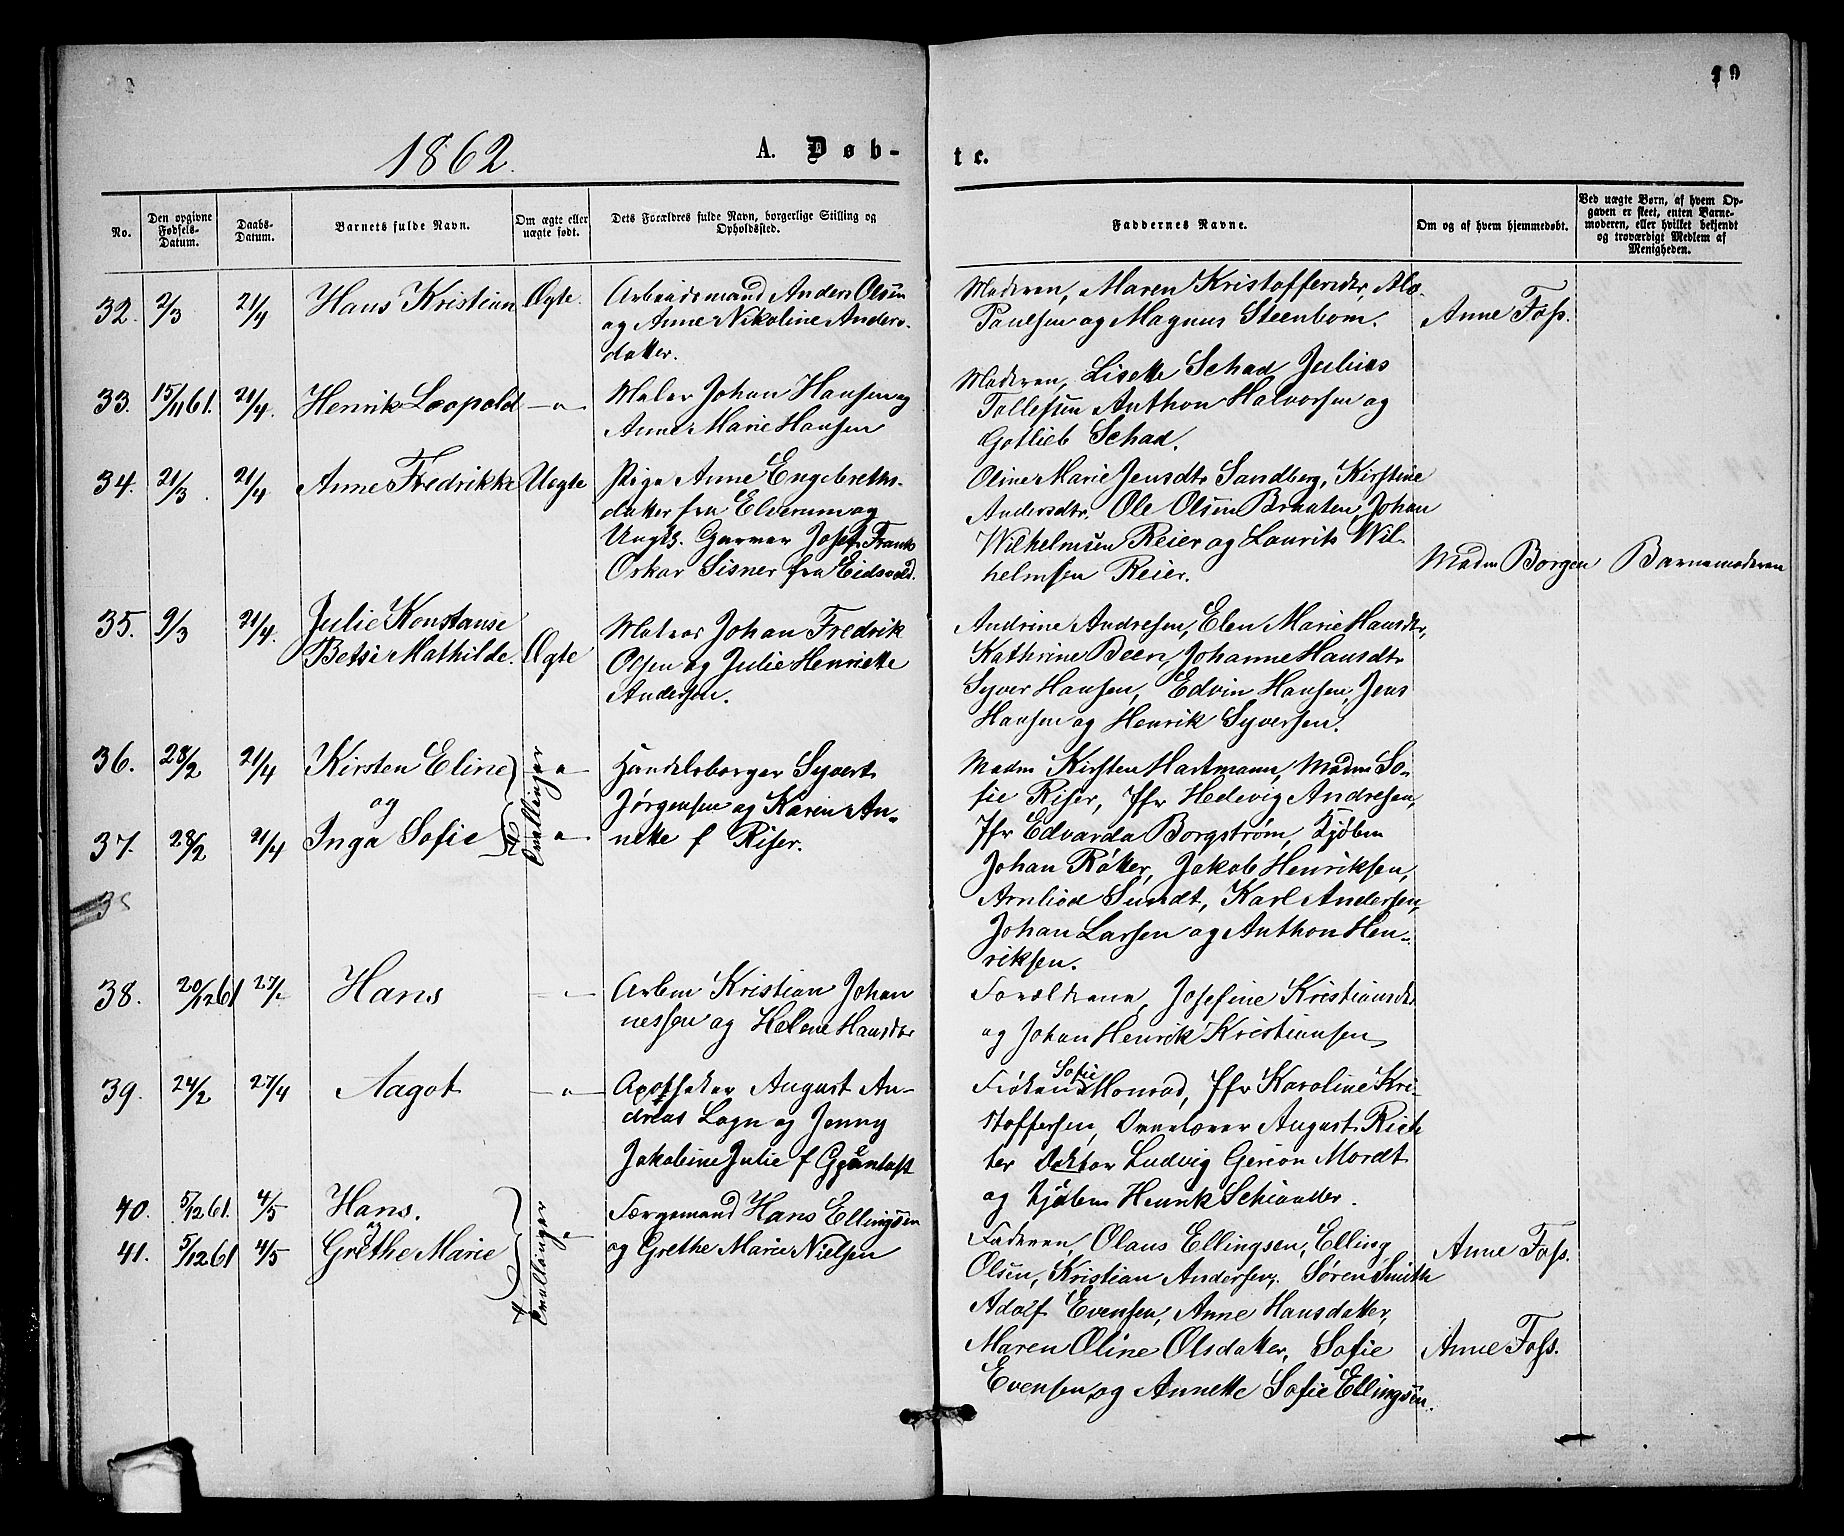 19
1862.
A. Døb-
te.
No.
Den opgivne Fødsels-Datum.
Daabs-Datum.
Barnets fulde Navn.
Om ægte eller uægte født.
Dets Forældres fulde Navn, borgerlige Stilling og Opholdssted.
Faddernes Navne.
Om og af hvem hjemmedøbt.
Ved uægte Børn, af hvem Opgaven er skeet, enten Barnemoderen, eller hvilket bekjendt og troværdigt Medlem af Menigheden.
32. 2/3 21/4 Hans Kristian Ægte. Arbeidsmand Anders Olsen
og Anne Nikoline Anders-
datter.
Moderen, Maren Kristoffersdtr,
Paulsen og Magnus Steenbom.
Anne Foss.
33. 15/11 61. 21/4. Henrik Leopold —"— Maler Johan Hansen og
Anne Marie Hansen
Moderen, Lisette Schad Julius
Tollefsen Anthon Halvorsen og
Gotlieb Schad.
34. 21/3 21/4 Anne Fredrikke Uægte Pige Anne Engebreths-
datter fra Elverum og
Ungk. Garver Josef Frank
Oskar Sisner fra Eidsvold.
Oline Marie Jensdtr Sandberg, Kirstine
Andersdtr. Ole Olsen Braaten, Johan
Wilhelmsen Reier og Laurits Wil-
helmsen Reier.
Madm Borgen Barnemoderen
35. 9/3 21/4. Julie Konstanse
Betsi Mathilde. Ægte
Matros Johan Fredrik
Olsen og Julie Henriette
Andersen.
Andrine Andresen, Elen Marie Hansdtr,
Kathrine Been, Johanne Hansdtr
Syver Hansen, Edvin Hansen, Jens
Hansen og Henrik Syversen.
36. 28/2 21/4 Kirsten Eline —"—
og
37. 28/2 21/4 Inga Sofie —"—
Tvillinger
Handelsborger Syvert
Jørgensen og Karen An-
nette f Riser.
Madm Kirsten Hartmann, Madm So-
fie Riser, Jfr Hedevig Andresen,
Jfr Edvarda Borgstrøm, Kjøbm
Johan Røtter, Jakob Henriksen,
Arnliod Sundt, Karl Andersen,
Johan Larsen og Anthon Hen-
riksen.
38
38. 20/12 61 27/2 Hans —"— Arbm Kristian Johan
nessen og Helene Hansdtr
Forældrene, Josefine Kristiansdtr
og Johan Henrik Kristiansen
39. 24/2 27/4 Aagot —"— Apotheker August An-
dreas Logn og Jenny
Jakobine Julie f
Frøken Sofie Monrad, Jfr Karoline Kri-
stoffersen, August Rich
ter Doktor Ludvig Mordt
og Kjøbm Henrik Schiander.
40. 5/12 61. 4/5 Hans.
og
41. 5/12 61 4/5 Grethe Marie
Tvillinger
—"—
Færgemand Hans Ellingsen
og Grethe Marie Nielsen
Faderen, Olaus Ellingsen, Elling
Olsen, Kristian Andersen, Søren Smith
Adolf Evensen, Anne Hansdatter,
Maren Oline Olsdatter, Sofie
Evensen, og Annette Sofie Ellingsen.
Anne Foss.
Anne Foss.